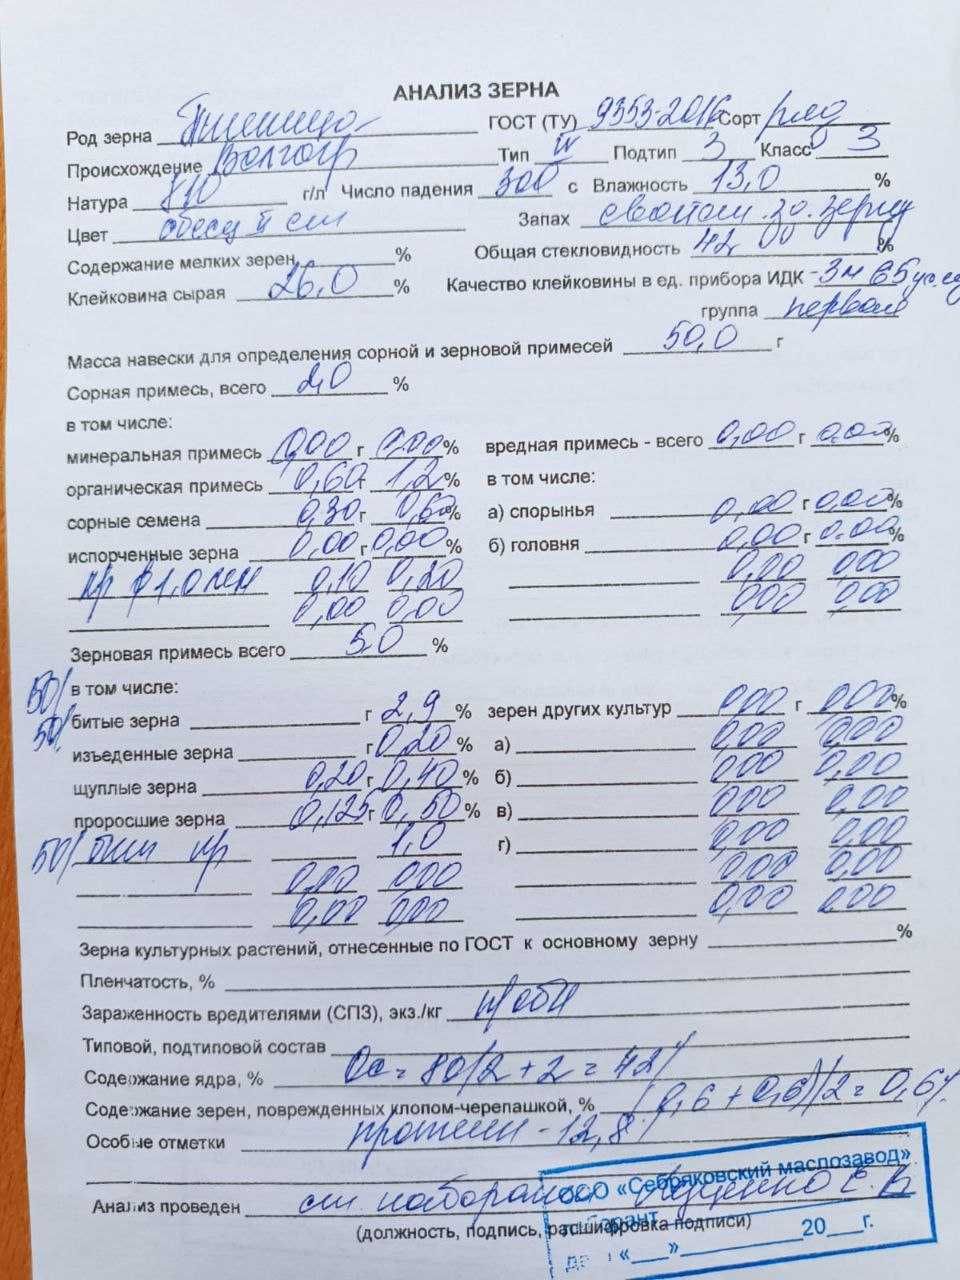 АНАЛИЗ ЗЕРНА
Род зерна Пшеница ГОСТ (ТУ) 9353-2016 Сорт ряд
Происхождение Волгогр Тип IV Подтип 3 Класс 3
Натура 810 г/л Число падения 300 с Влажность 13,0 %
Цвет обесц II ст Запах свойствен. зд. зерну
Содержание мелких зерен % Общая стекловидность 42 %
Клейковина сырая 26,0 % Качество клейковины в ед. прибора ИДК -3м 65 ус.ед
группа первая
Масса навески для определения сорной и зерновой примесей 50,0 г
Сорная примесь, всего 2,0 %
в том числе:
минеральная примесь 0,00 г 0,00% вредная примесь - всего 0,00 г 0,00%
органическая примесь 0,60 1,2% в том числе:
сорные семена 0,30г 0,60% а) спорынья 0,00 г 0,00%
испорченные зерна 0,00 г 0,00% б) головня 0,00 г 0.00%
пр ф 1,0 мм 0,10 0,20 0,00 0,00
0,00 0,00 0,00 0,00
Зерновая примесь всего 5,0 %
50/ в том числе:
50/ битые зерна г 2,9 % зерен других культур 0,00 г 0,00%
изъеденные зерна г 0,20 % а) 0,00 0,00
щуплые зерна 0,20 г 0,40 % б) 0,00 0,00
проросшие зерна 0,125 г 0,50 % в) 0,00 0,00
50/ пр 1,0 г) 0,00 0,00
0,00 0,00 0,00 0,00
0,00 0,00 0,00 0,00
Зерна культурных растений, отнесенные по ГОСТ к основному зерну %
Пленчатость, %
Зараженность вредителями (СПЗ), экз./кг н/обн
Типовой, подтиповой состав
Содержание ядра, % Ос = 80/2 + 2 = 42%
Содержание зерен, поврежденных клопом-черепашкой, % (0,6 + 0,6)/2 = 0,6%
Особые отметки протеин - 12,8%
Анализ проведен ст. лаборант Луценко Е. В
(должность, подпись, расшифровка подписи)
ООО «Себряковский маслозавод»
лаборант
«___»__________20___г.